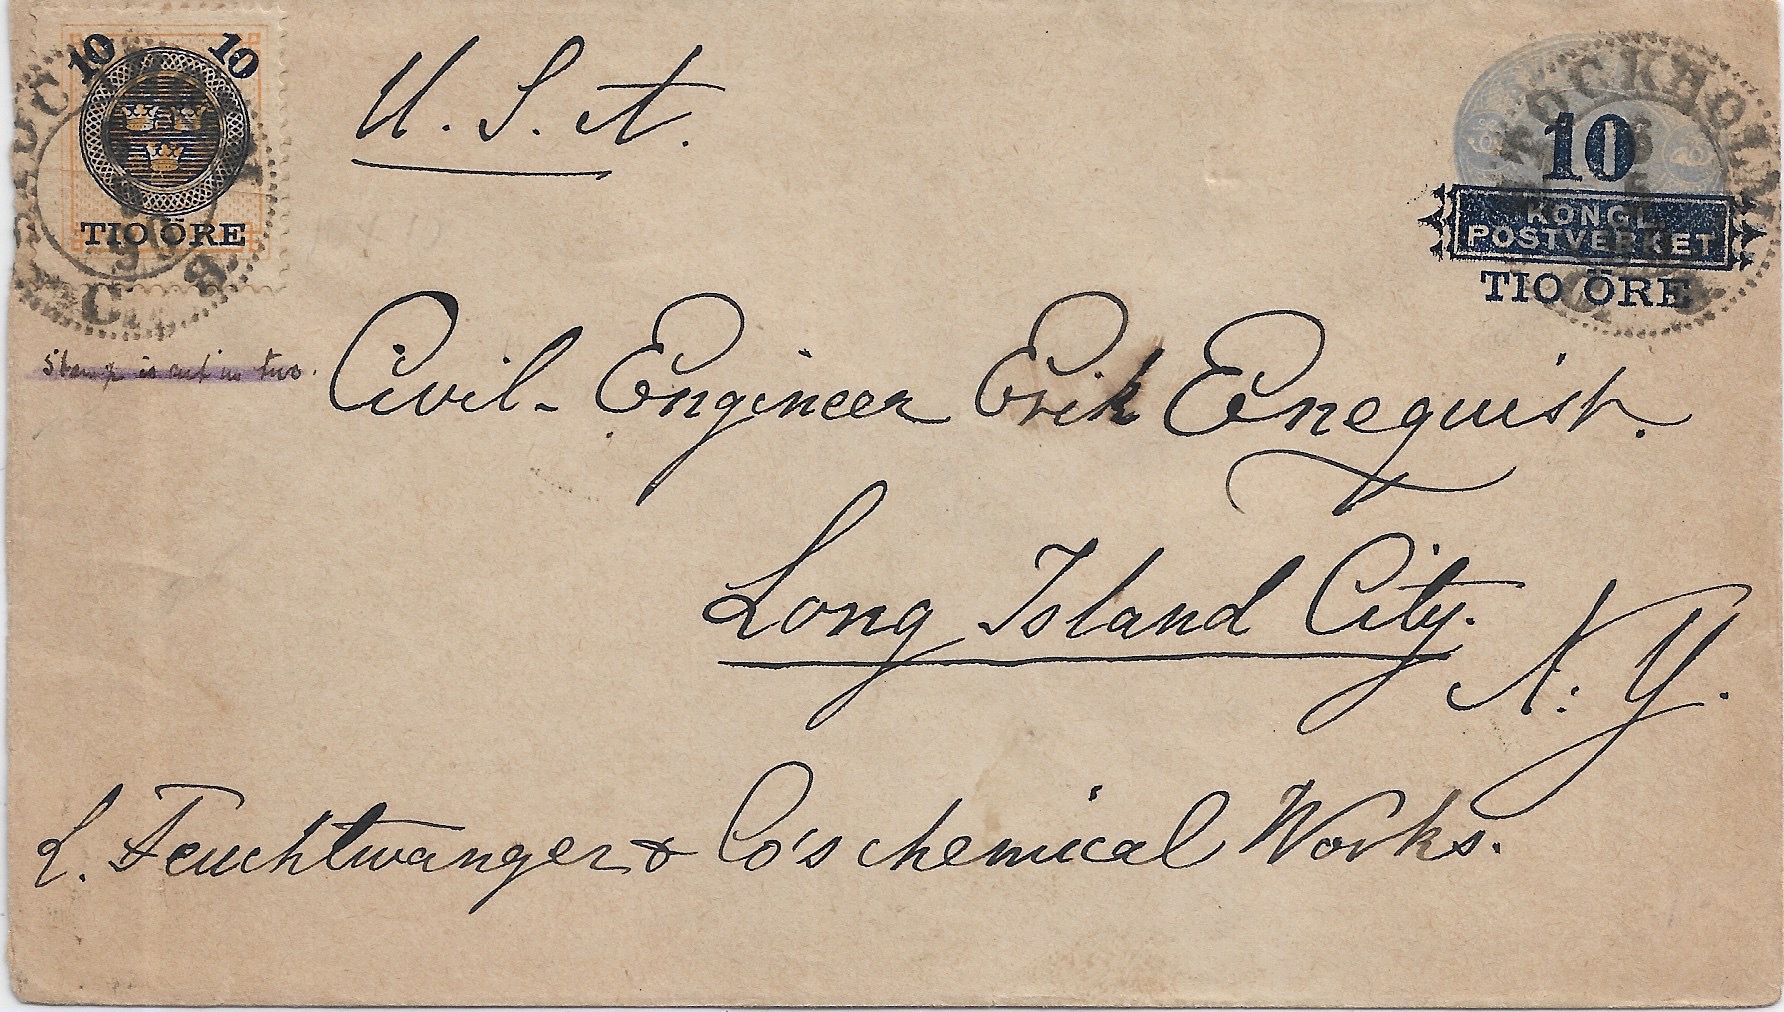 10 10
TIO ÖRE
U. S. A.
STOCKHOLM
10
KONGL.
POSTVERKET
TIO ÖRE
Stamp is cut in two.
Civil-Engineer Erik Enequist.
Long Island City.
N. Y.
L. Feuchtwanger & Co's chemical Works.